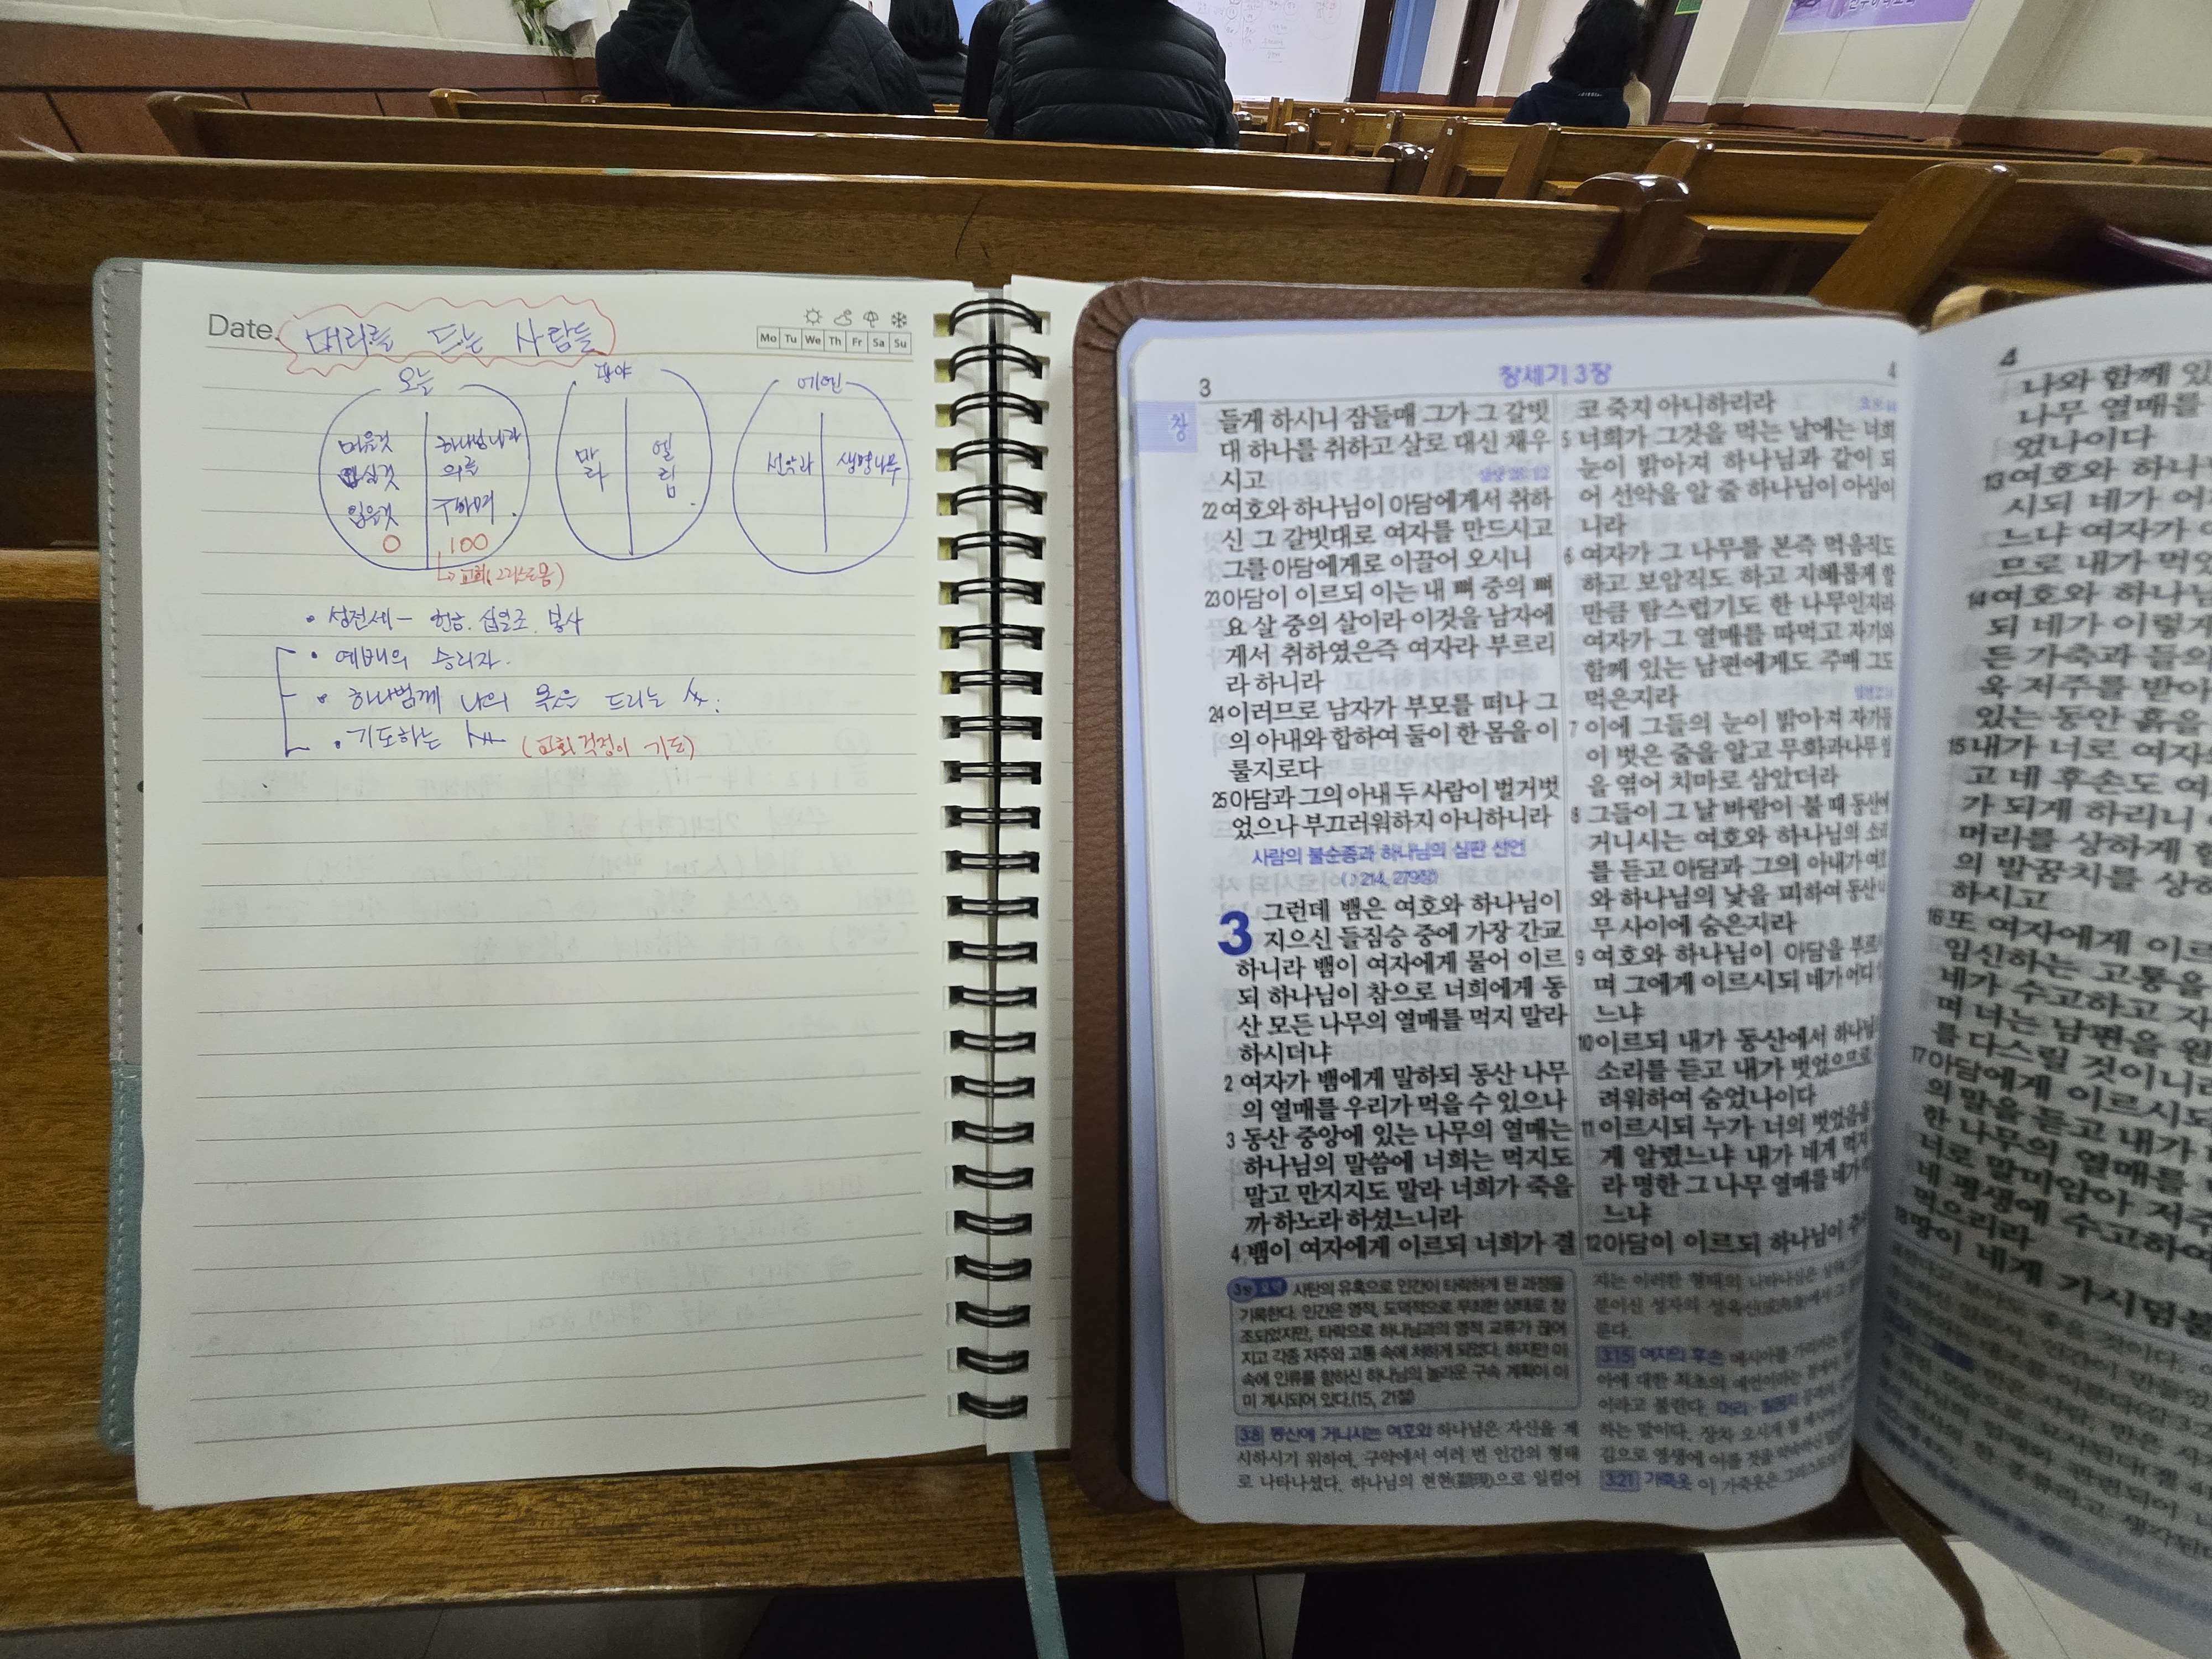 Date. 머리를 드는 사람들
Mo Tu We Th Fr Sa Su
오늘
먹을것
마실것
입을것
0
하나님나라
의를
구하며
100
↳ 교회(그리스도몸)
광야
마라
엘림
에덴
선악과
생명나무
• 성전세 - 헌금. 십일조. 봉사
• 예배의 승리자.
• 하나님께 나의 몫을 드리는
• 기도하는 (교회 걱정이 기도)
3
창세기 3장
4
창
들게 하시니 잠들매 그가 그 갈빗
대 하나를 취하고 살로 대신 채우
시고
22 여호와 하나님이 아담에게서 취하
신 그 갈빗대로 여자를 만드시고
그를 아담에게로 이끌어 오시니
23 아담이 이르되 이는 내 뼈 중의 뼈
요 살 중의 살이라 이것을 남자에
게서 취하였은즉 여자라 부르리
라 하니라
24 이러므로 남자가 부모를 떠나 그
의 아내와 합하여 둘이 한 몸을 이
룰지로다
25 아담과 그의 아내 두 사람이 벌거벗
었으나 부끄러워하지 아니하니라
사람의 불순종과 하나님의 심판 선언
(♪ 214, 279장)
3 그런데 뱀은 여호와 하나님이
지으신 들짐승 중에 가장 간교
하니라 뱀이 여자에게 물어 이르
되 하나님이 참으로 너희에게 동
산 모든 나무의 열매를 먹지 말라
하시더냐
2 여자가 뱀에게 말하되 동산 나무
의 열매를 우리가 먹을 수 있으나
3 동산 중앙에 있는 나무의 열매는
하나님의 말씀에 너희는 먹지도
말고 만지지도 말라 너희가 죽을
까 하노라 하셨느니라
4 뱀이 여자에게 이르되 너희가 결
3장 요약 사탄의 유혹으로 인간이 타락하게 된 과정을
기록한다. 인간은 영적, 도덕적으로 무죄한 상태로 창
조되었지만, 타락으로 하나님과의 영적 교류가 끊어
지고 각종 저주와 고통 속에 처하게 되었다. 하지만 이
속에 인류를 향하신 하나님의 놀라운 구속 계획이 이
미 계시되어 있다.(15, 21절)
3:8 동산에 거니시는 여호와 하나님은 자신을 계
시하시기 위하여, 구약에서 여러 번 인간의 형태
로 나타나셨다. 하나님의 현현(顯現)으로 일컬어
코 죽지 아니하리라
5 너희가 그것을 먹는 날에는 너희
눈이 밝아져 하나님과 같이 되
어 선악을 알 줄 하나님이 아심이
니라
6 여자가 그 나무를 본즉 먹음직도
하고 보암직도 하고 지혜롭게 할
만큼 탐스럽기도 한 나무인지라
여자가 그 열매를 따먹고 자기와
함께 있는 남편에게도 주매 그도
먹은지라
7 이에 그들의 눈이 밝아져 자기들
이 벗은 줄을 알고 무화과나무 잎
을 엮어 치마로 삼았더라
8 그들이 그 날 바람이 불 때 동산에
거니시는 여호와 하나님의 소리
를 듣고 아담과 그의 아내가 여호
와 하나님의 낯을 피하여 동산 나
무 사이에 숨은지라
9 여호와 하나님이 아담을 부르시
며 그에게 이르시되 네가 어디 있
느냐
10 이르되 내가 동산에서 하나님의
소리를 듣고 내가 벗었으므로
려워하여 숨었나이다
11 이르시되 누가 너의 벗었음을
게 알렸느냐 내가 네게 먹지
라 명한 그 나무 열매를 네가
느냐
12 아담이 이르되 하나님이
지는 이러한 형태의 나타나심은
분이신 성자의 성육신
룬다.
3:15 여자의 후손 메시아를
아에 대한 최초의 예언이라는
이라고 불린다. 머리
하는 말이다. 장차 오시게 될
김으로 영생에 이를 것을
3:21 가죽옷 이 가죽옷은
4
나와 함께
나무 열매를
었나이다
13 여호와 하나님
시되 네가 어
느냐 여자가
므로 내가 먹
14 여호와 하나님
되 네가 이렇
든 가축과 들의
욱 저주를 받아
있는 동안 흙을
15 내가 너로 여자
고 네 후손도 여
가 되게 하리니
머리를 상하게
의 발꿈치를 상
하시고
16 또 여자에게 이르
임신하는 고통을
네가 수고하고 자
며 너는 남편을 원
를 다스릴 것이니라
17 아담에게 이르시되
의 말을 듣고 내가
한 나무의 열매를
너로 말미암아 저주
네 평생에 수고하여
먹으리라
18 땅이 네게 가시덤불